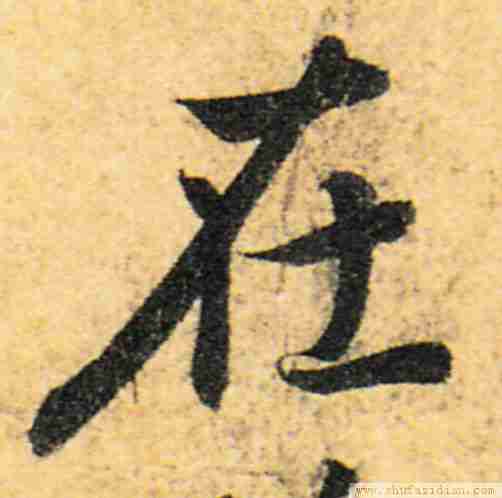 在
www.shufazidian.com